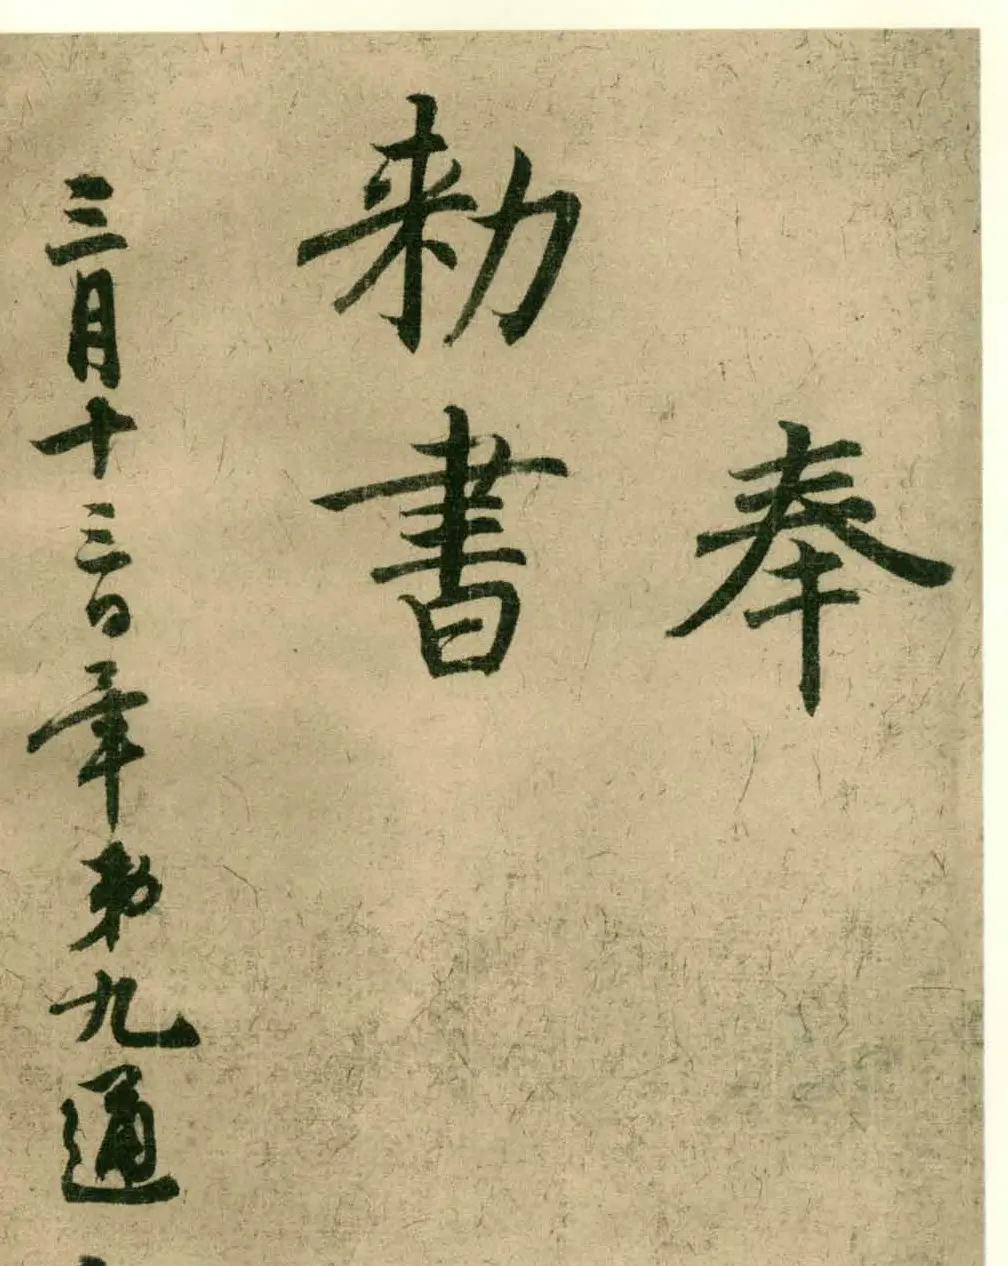 奉
勑書
三月十三日九通